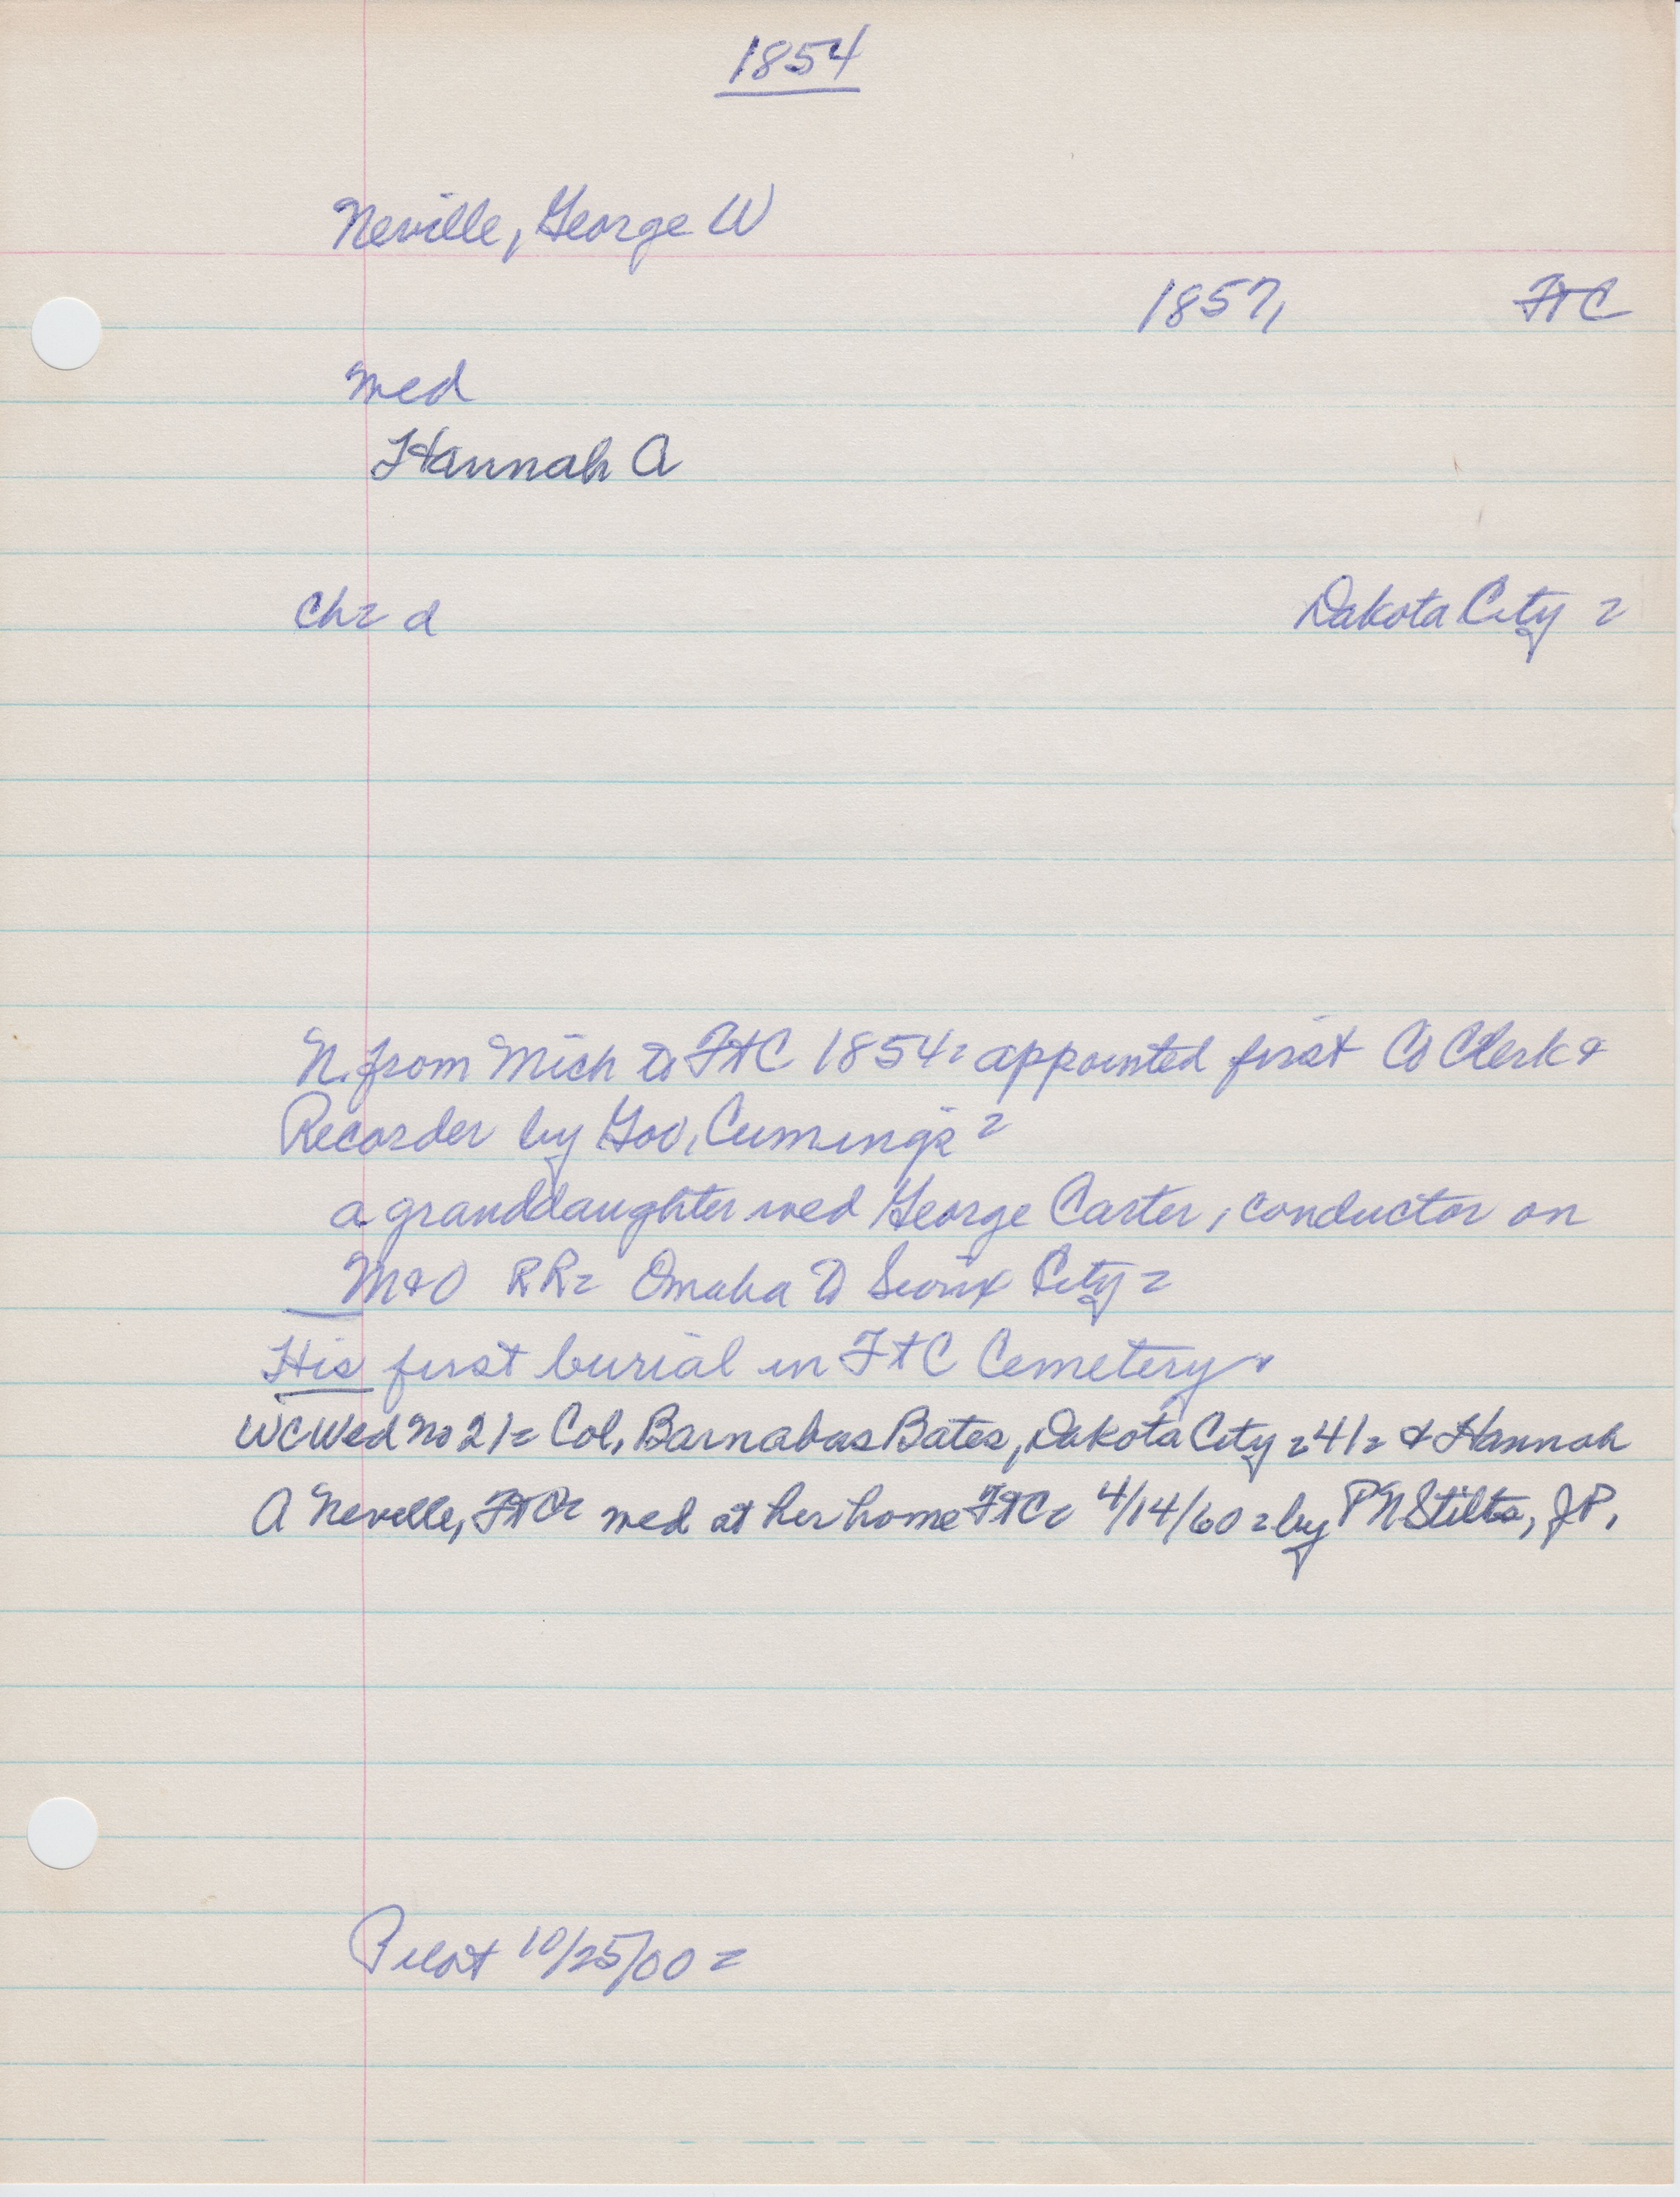 1854
Neville, George W
1857, FtC
wed
Hannah A
Ch= d Dakota City =
N. from Mich to FtC 1854= appointed first Co Clerk &
Recorder by Gov. Cumings =
a granddaughter wed George Carter, conductor on
M&O RR= Omaha to Sioux City =
His first burial in FtC Cemetery
WCWed No 21= Col, Barnabas Bates, Dakota City = 41= & Hannah
A Neville, FtC= wed at her home FtC= 4/14/60 = by P N Stilts, JP,
Pilot 10/25/00 =